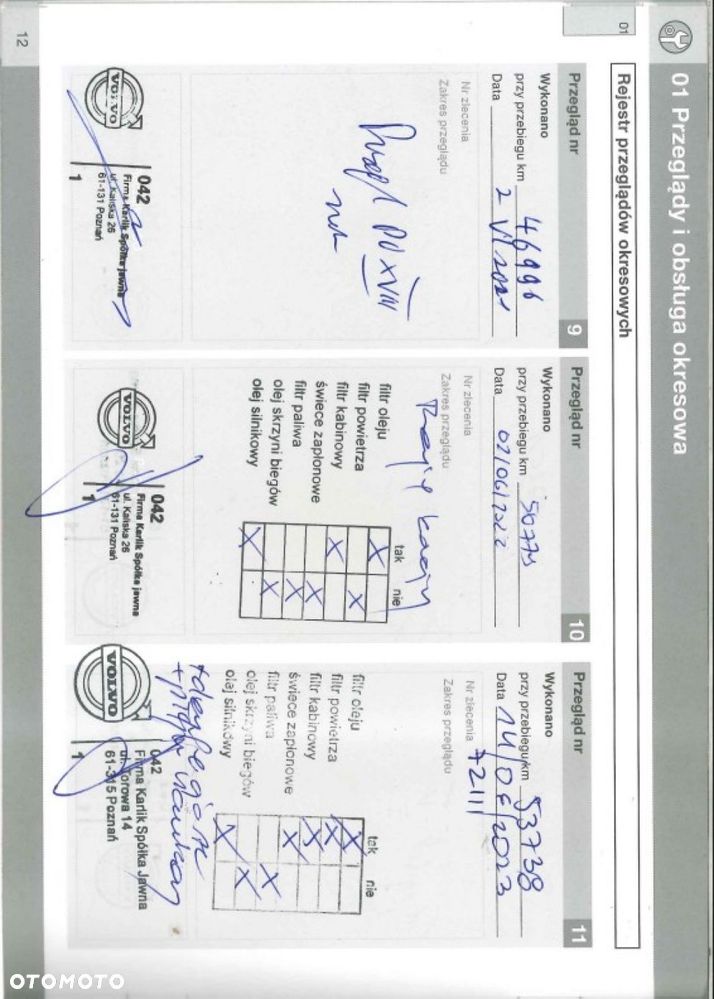 01 Przeglądy i obsługa okresowa
01
Rejestr przeglądów okresowych
Przegląd nr 9
Wykonano
przy przebiegu km 46996
Data 2 VI 2021
Nr zlecenia
Zakres przeglądu
XVIII
VOLVO
042
Firma Karlik Spółka jawna
ul. Kaliska 26
61-131 Poznań
1
Przegląd nr 10
Wykonano
przy przebiegu km
Data 02/06/2022
Nr zlecenia
Zakres przeglądu
tak nie
filtr oleju X
filtr powietrza X
filtr kabinowy X
świece zapłonowe X
filtr paliwa X
olej skrzyni biegów X
olej silnikowy X
VOLVO
042
Firma Karlik Spółka jawna
ul. Kaliska 26
61-131 Poznań
1
Przegląd nr 11
Wykonano
przy przebiegu km 53738
Data 14/06/2023
Nr zlecenia 72111
Zakres przeglądu
tak nie
filtr oleju X
filtr powietrza X
filtr kabinowy X
świece zapłonowe X
filtr paliwa X
olej skrzyni biegów X
olej silnikowy X
VOLVO
042
Firma Karlik Spółka Jawna
61-315 Poznań
1
12
OTOMOTO